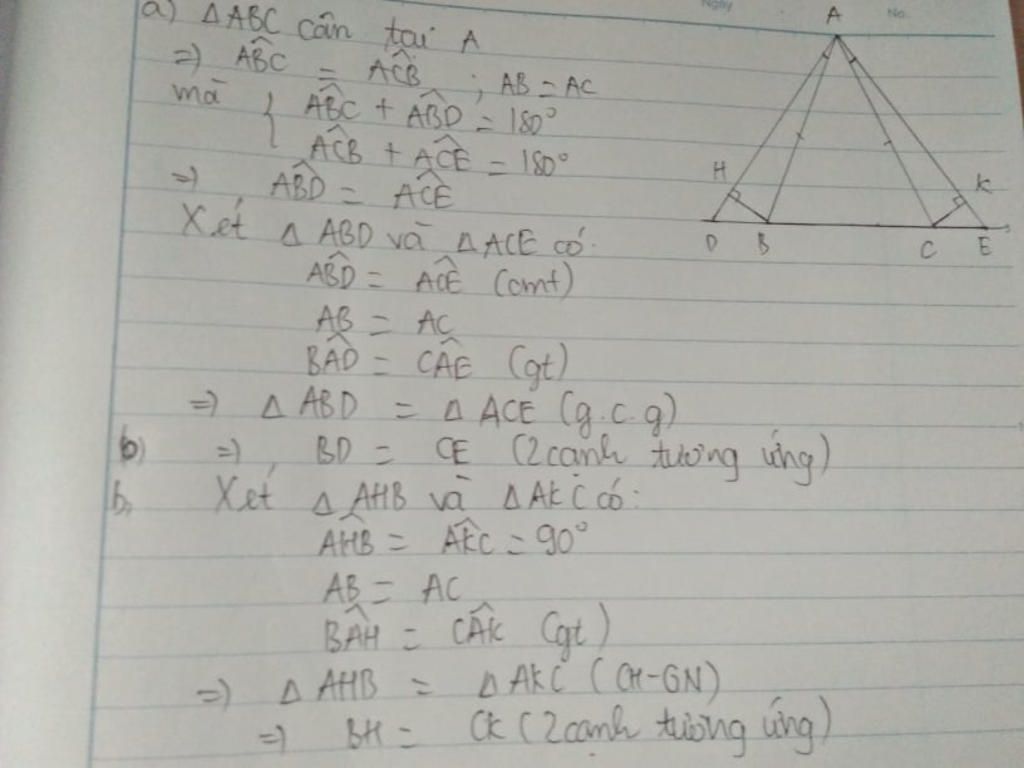 Ngày No.
a) △ABC cân tại A
=> ABĈ = AĈB ; AB = AC
mà { AB̂C + AB̂D = 180°
AĈB + AĈE = 180°
=> AB̂D = AĈE
Xét △ABD và △ACE có:
AB̂D = AĈE (cmt)
AB = AC
BÂD = CÂE (gt)
=> △ABD = △ACE (g.c.g)
b) => BD = CE (2 cạnh tương ứng)
b, Xét △AHB và △AKC có:
AĤB = AK̂C = 90°
AB = AC
BÂH = CÂK (gt)
=> △AHB = △AKC (CH-GN)
=> BH = CK (2 cạnh tương ứng)
A
H K
D B C E